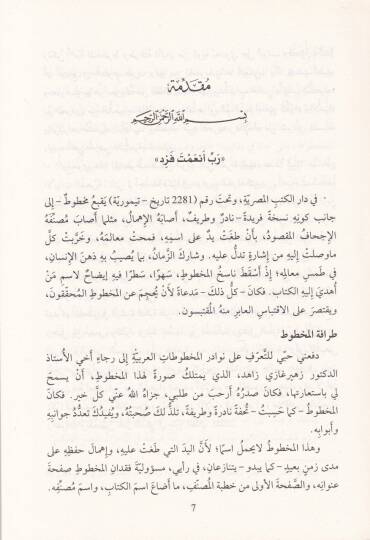 مُقدّمة
بسم الله الرحمن الرحيم
«رَبِّ أنْعَمْتَ فَزِد»
في دار الكتبِ المصريّةِ، وتحتَ رقم (2281 تاريخ – تيموريّة) يَقبعُ مخطوطٌ – إلى
جانب كونِه نسخةً فريدةً – نادرٌ وطريفٌ، أصابَهُ الإهمالُ، مثلما أصابَ مصنِّفَهُ
الإجحافُ المقصودُ، بأن طغَتْ يدٌ على اسمِهِ، فمحتْ معالمَهُ، وخرَّبتْ كلَّ
ماوصلتْ إليه من إشارةٍ تدلُّ عليه. وشاركَ الزَّمانُ، بما يُصيبُ بِه ذهنَ الإنسانِ،
في طمسِ معالمِه؛ إذْ أسْقطَ ناسخُ المخطوطِ، سَهْوًا، سَطرًا فيهِ إيضاحٌ لاسمِ مَنْ
أُهديَ إليهِ الكتاب. فكانَ – كلُّ ذلكَ – مَدعاةً لأَن يُحجِمَ عن المخطوطِ المُحقّقون،
ويقتصرَ على الاقتباسِ العابرِ منهُ المُقتبسون.
طرافة المخطوط
دفعني حُبّي للتَّعرّفِ على نوادرِ المخطوطاتِ العربيّةِ إلى رجاءِ أخي الأُستاذ
الدكتور زهيرغازي زاهد، الذي يمتلكُ صورةً لهذا المخطوطِ، أنْ يسمحَ
لي باستعارتها، فكانَ صدرُهُ أرحبَ من طلبي، جزاهُ اللهُ عنّي كلَّ خير. فكانَ
المخطوطُ – كما حَسِبتُ – تُحفةً نادرةً وطريفةً، تلذُّ لكَ صُحبتُهُ، ويُفيدُكَ تعدُّدُ جوانبِهِ
وأبوابِه.
وهذا المخطوطُ لايحملُ اسمًا؛ لأنَّ اليدَ التي طَغَتْ عليهِ، وإهمالَ حفظِهِ على
مدى زمنٍ بعيدٍ – كما يبدو – يتنازعانِ، في رأيي، مسؤوليّةَ فقدانِ المخطوطِ صفحةَ
عنوانِه، والصَّفحةَ الأولى من خطبة المصنِّف، ما أضاعَ اسمَ الكتابِ، واسمَ مُصنِّفِه.
7